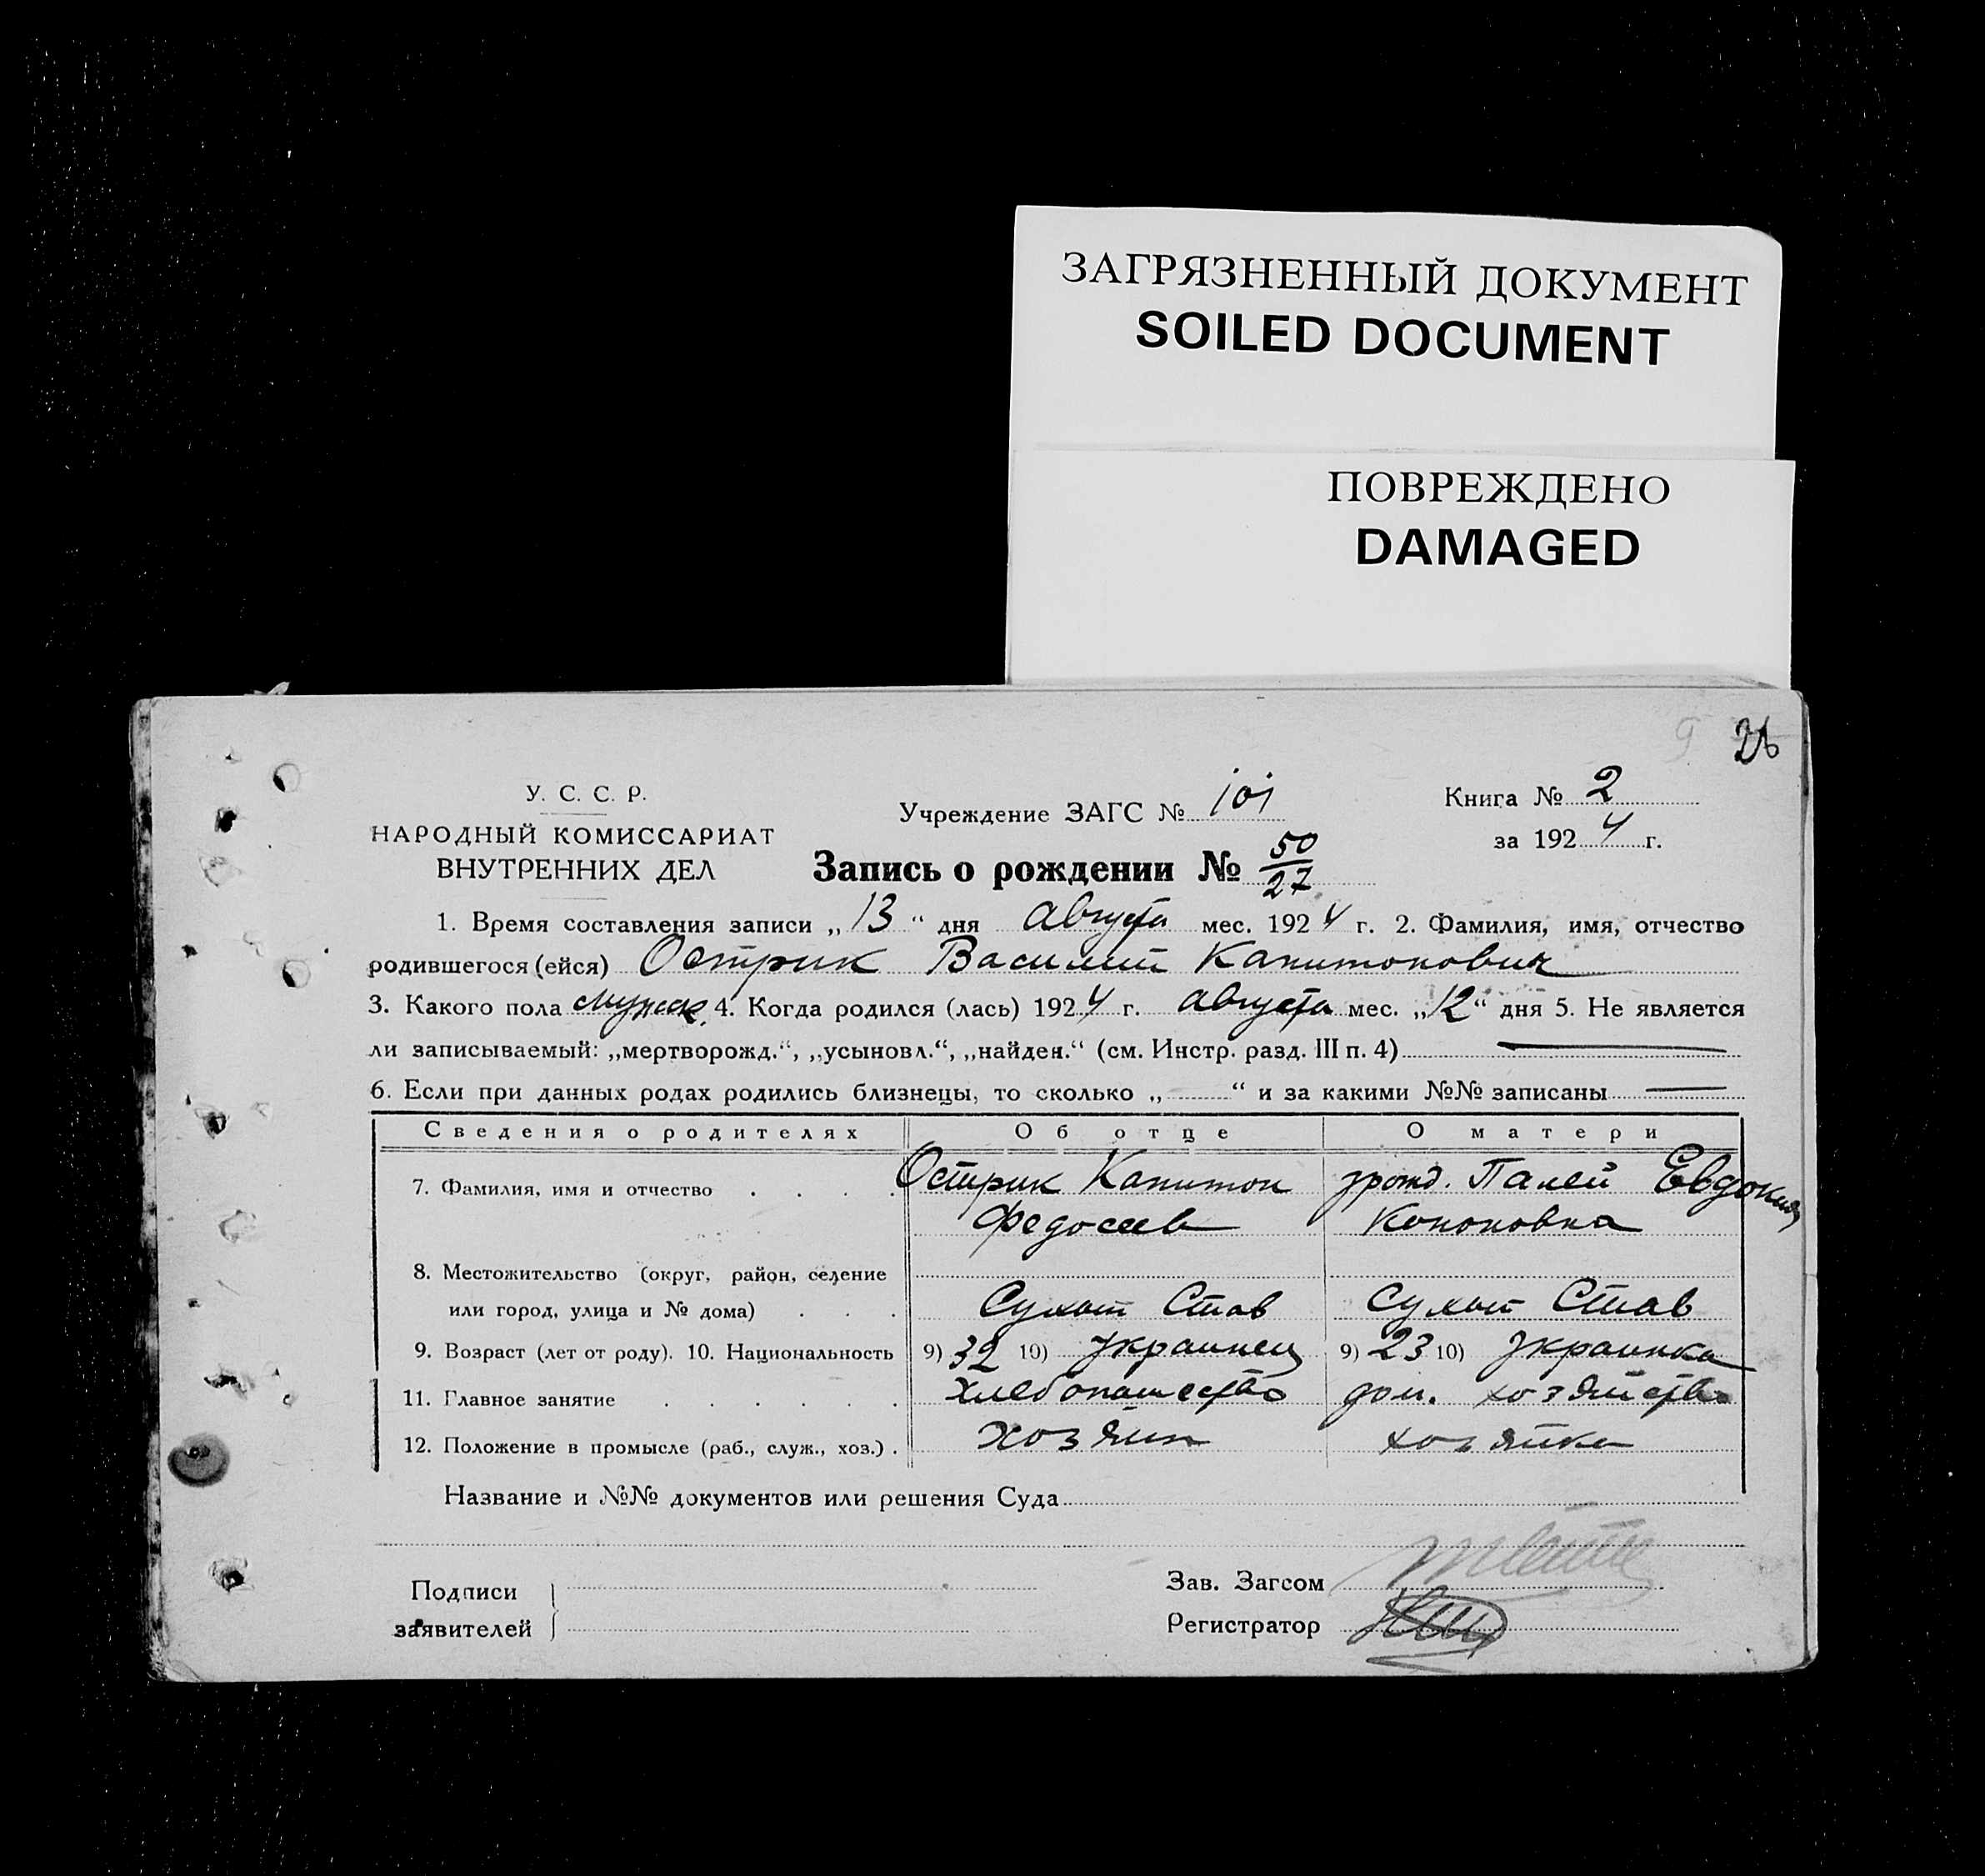 ЗАГРЯЗНЕННЫЙ ДОКУМЕНТ
SOILED DOCUMENT
ПОВРЕЖДЕНО
DAMAGED
26
У. С. С. Р.
НАРОДНЫЙ КОМИССАРИАТ
ВНУТРЕННИХ ДЕЛ
Учреждение ЗАГС № 101
Книга № 2
за 1924 г.
Запись о рождении № 50/27
1. Время составления записи „13“ дня Августа мес. 1924 г. 2. Фамилия, имя, отчество
родившегося (ейся) Острик Василий Капитонович
3. Какого пола мужск. 4. Когда родился (лась) 1924 г. августа мес. „12“ дня 5. Не является
ли записываемый: „мертворожд.“, „усыновл.“, „найден.“ (см. Инстр. разд. III п. 4)
6. Если при данных родах родились близнецы, то сколько „ “ и за какими №№ записаны
Сведения о родителях Об отце О матери
7. Фамилия, имя и отчество . . . . Острик Капитон урожд. Палей Евдокия
Федосеев Кононовна
8. Местожительство (округ, район, селение
или город, улица и № дома) . . . Сухой Став Сухой Став
9. Возраст (лет от роду). 10. Национальность 9) 32 10) Украинец 9) 23 10) Украинка
11. Главное занятие . . . . . . хлебопашество дом. хозяйство
12. Положение в промысле (раб., служ., хоз.) . хозяин хозяйка
Название и №№ документов или решения Суда
Подписи
заявителей
Зав. Загсом
Регистратор